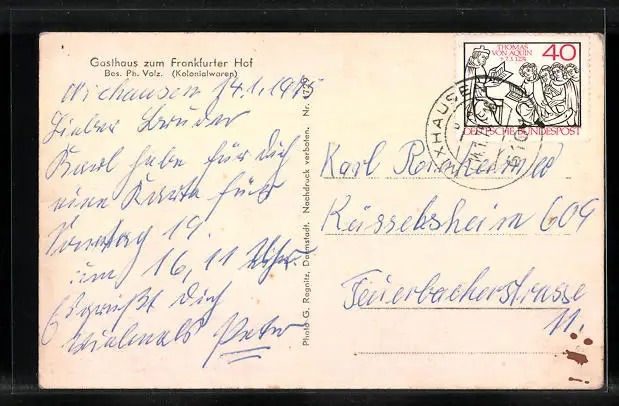 Gasthaus zum Frankfurter Hof
Bes. Ph. Volz. (Kolonialwaren)
Wixhausen 14.1.1975
Lieber Bruder
Karl habe für dich
eine Karte fürs
Sonntag 19.
um 16,11 Uhr.
Es grüßt dich
vielmals Peter
Photo G. Regnitz, Darmstadt. Nachdruck verboten. Nr. 1729
THOMAS
VON AQUIN
† 7.3.1274
40
DEUTSCHE BUNDESPOST
WIXHAUSEN
6101
Karl
Rüsselsheim 609
Feuerbacherstrasse
11.